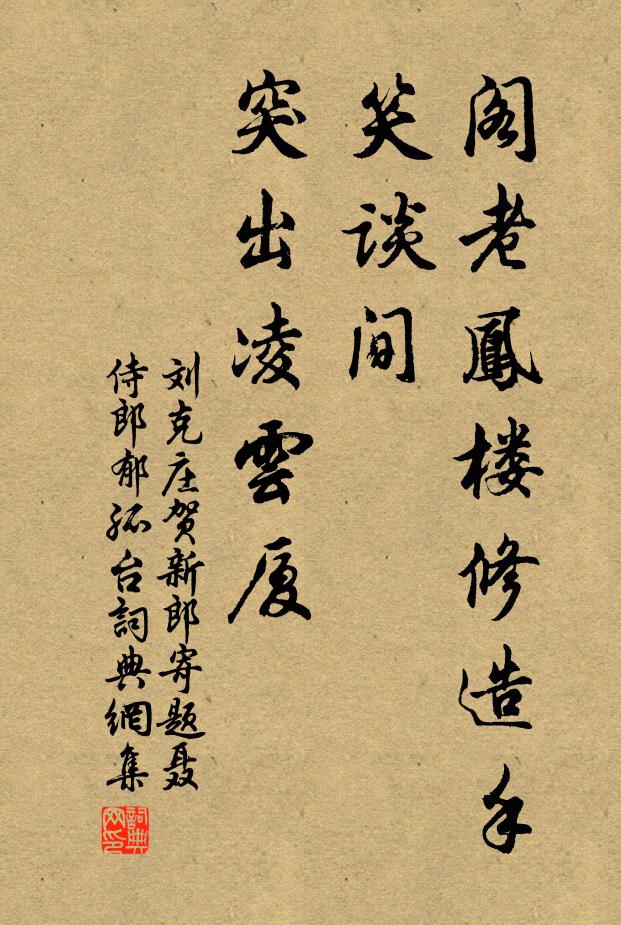 阁老鳳楼修造手
笑談间
突出凌雲厦
刘克庄贺新郎寄题聂
侍郎郁孤台詞典網集
詞典网印